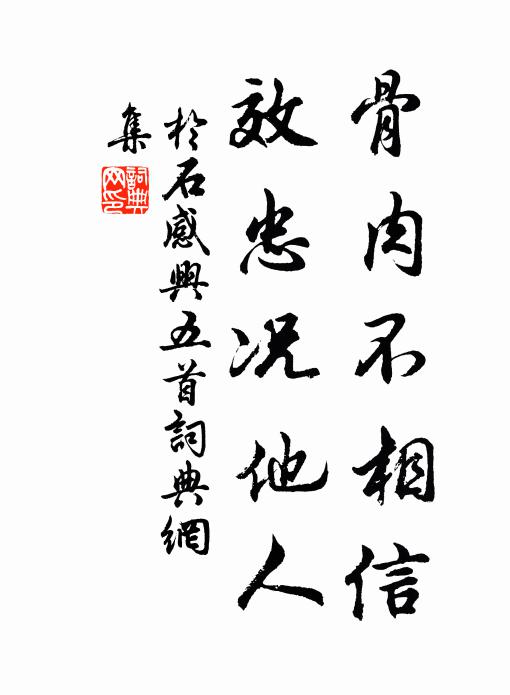 骨肉不相信
效忠况他人
於石感興五首詞典網
集
詞典網印